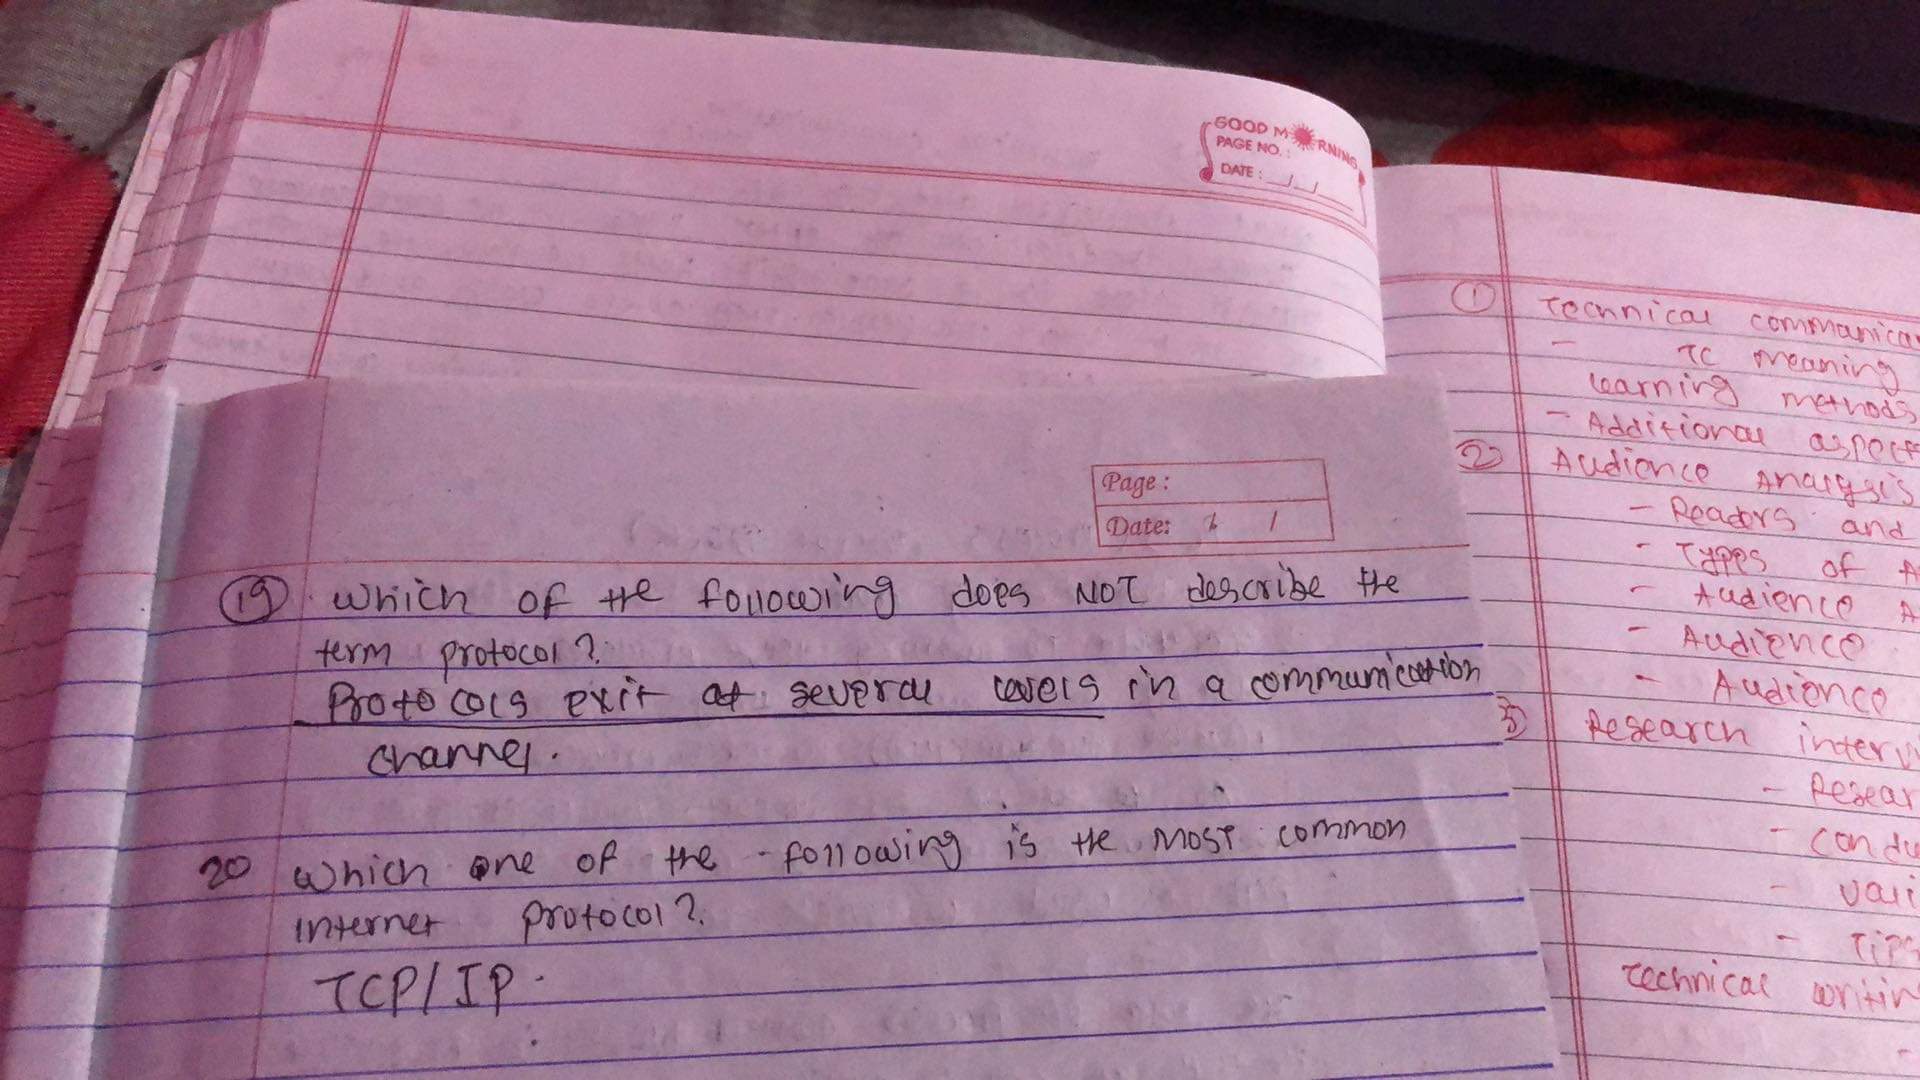 GOOD MORNING
PAGE NO. :
DATE : / /
Page :
Date: /
19 Which of the following does NOT describe the
term protocol?
Protocols exit at several levels in a communication
channel.
20 Which one of the following is the most common
internet protocol?
TCP/IP.
1 Technical
- TC meaning
learning methods
- Additional
2 Audience Analysis
- Readers and
- Types of
- Audience
- Audience
- Audience
3 Research
-
-
-
- Tips
Technical